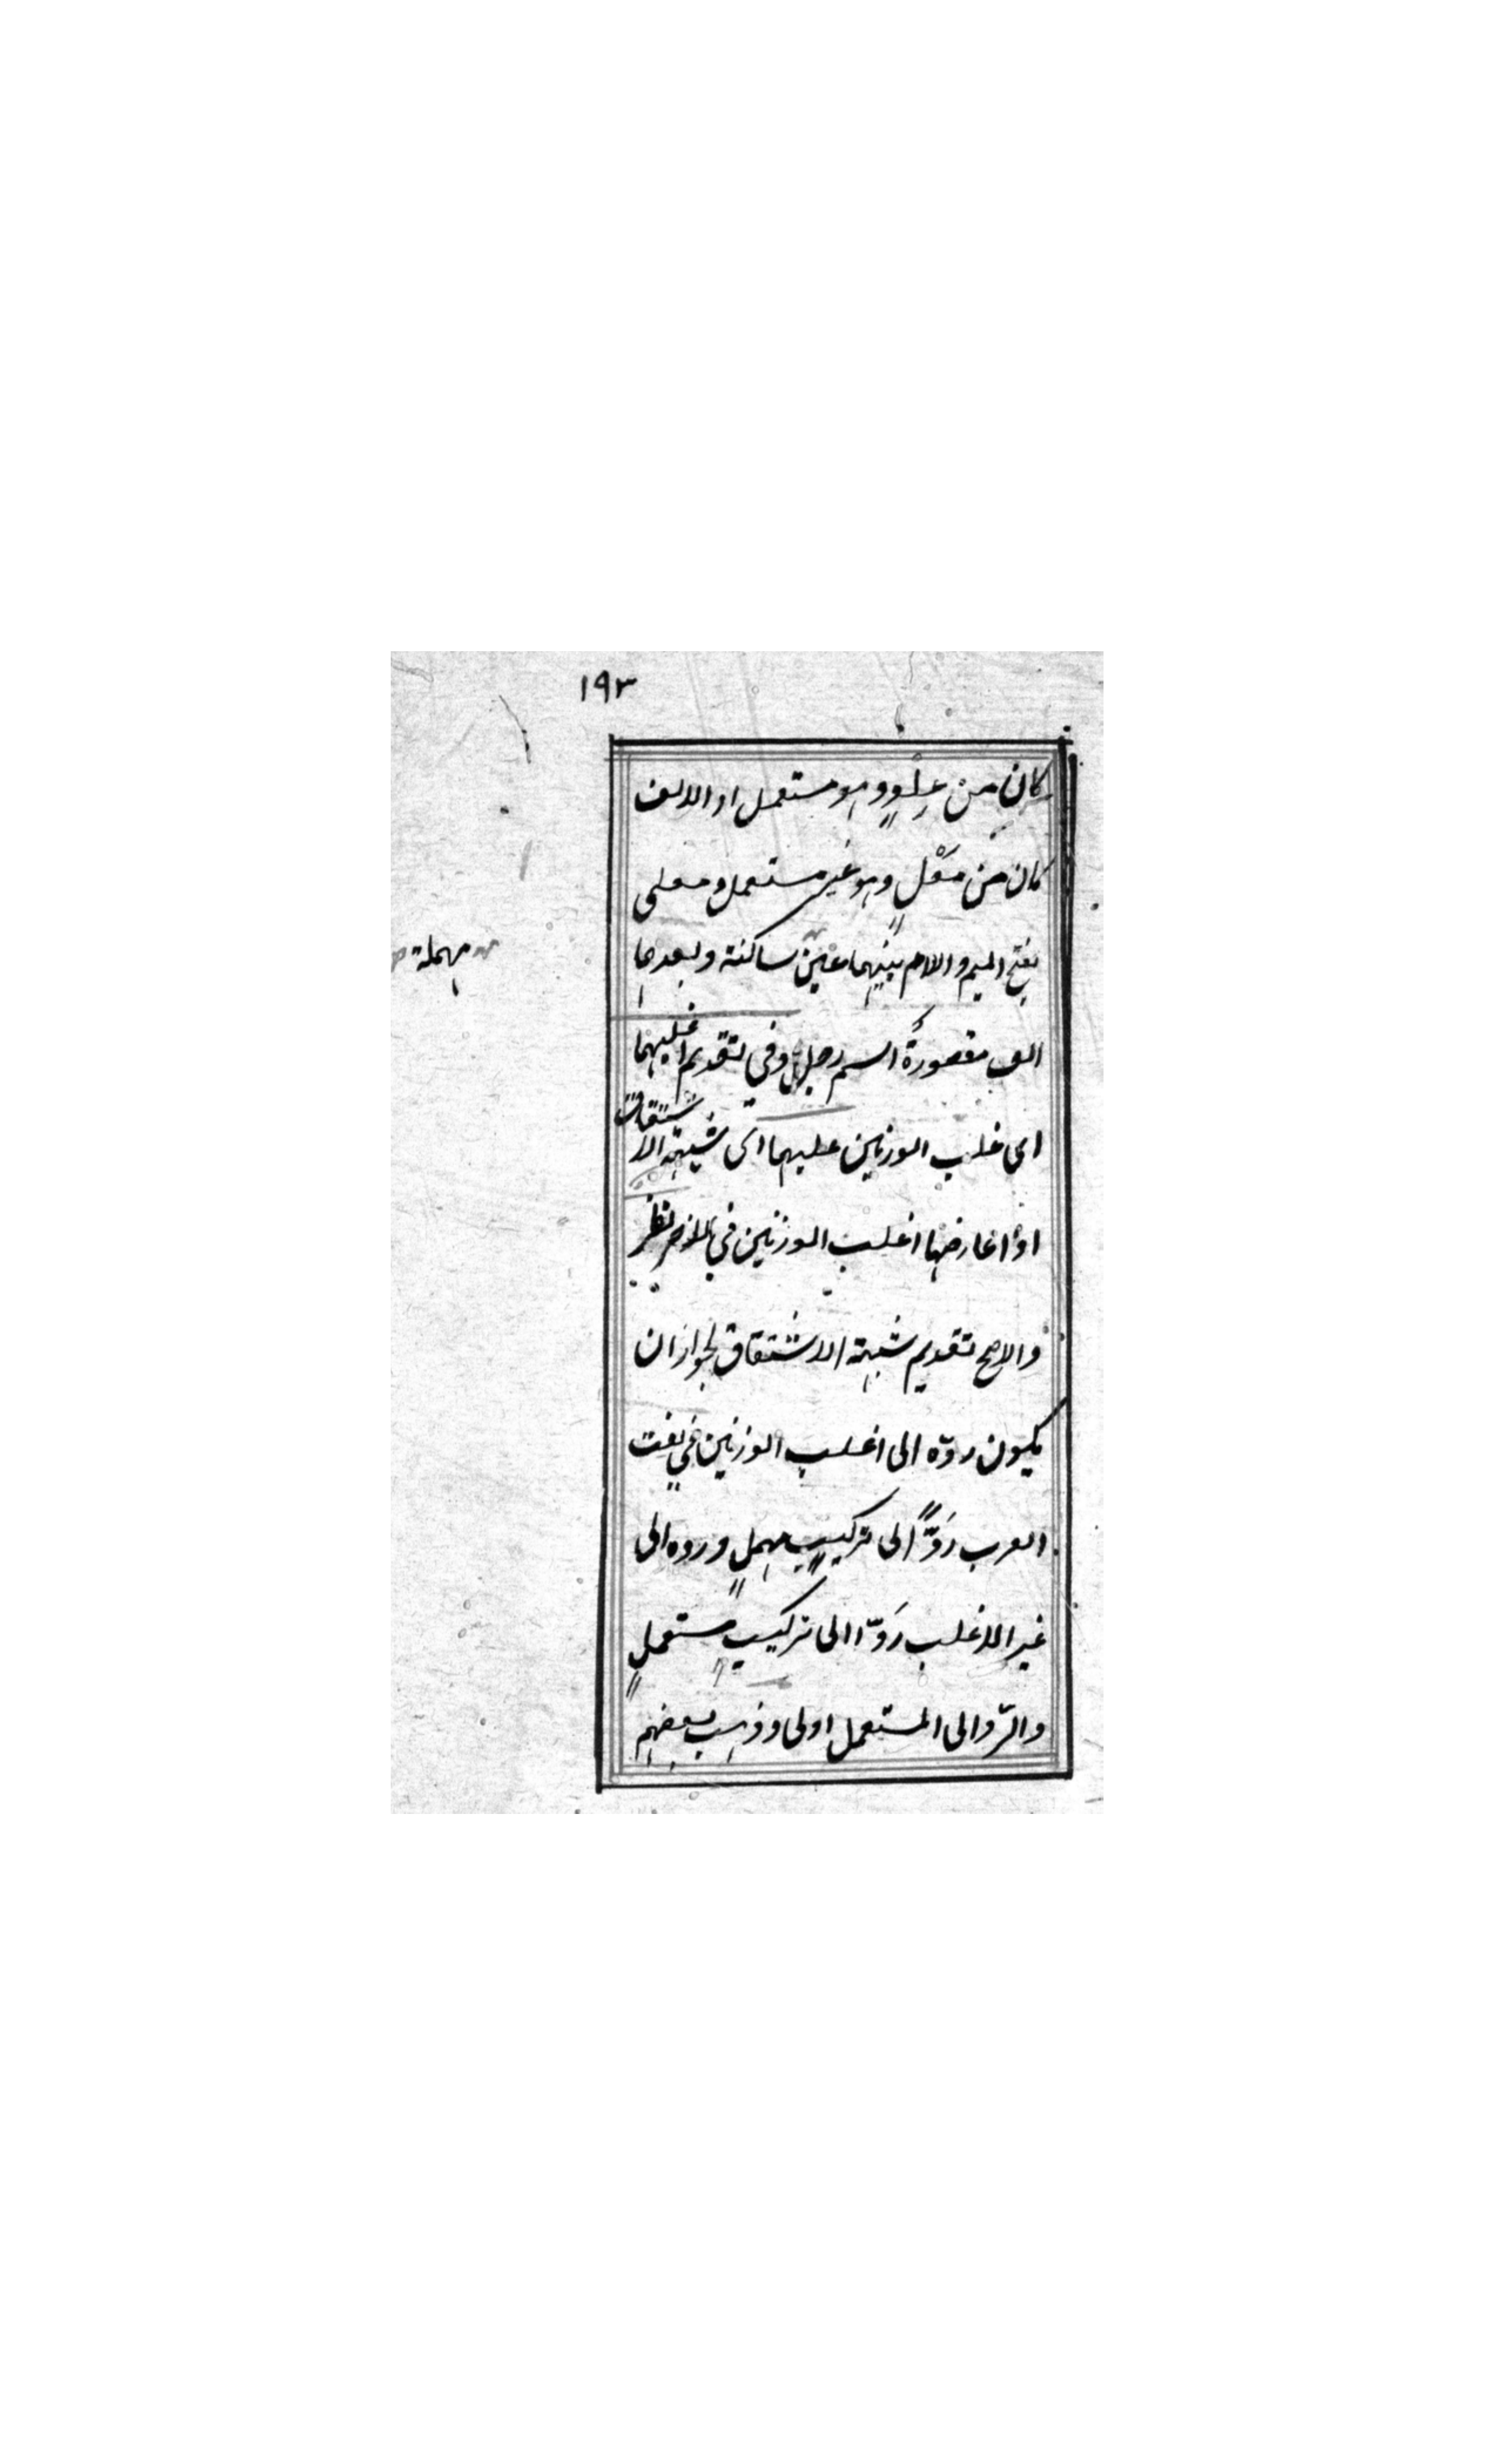 ١٩٣
كان من عِلْوٍ وهو مستعمل او الالف
كان من مَعْلٍ وهو غير مستعمل ومعلى
بفتح الميم واللام بينهما عين ساكنة وبعدها
مهملة
الف مقصورة اسم رجل وفي تقديم اغلبهما
اى غلب الوزنين عليهما اى شبهة الاشتقاق
اذا عارضها اغلب الوزنين في الاخر نظر
والاصح تقديم شبهة الاشتقاق لجواز ان
يكون ردّه الى اغلب الوزنين في لغت
العرب رَدًّا الى تركيبٍ مهملٍ ورده الى
غير الاغلب رَدّا الى تركيبٍ مستعملٍ
والردّ الى المستعمل اولى وذهب بعضهم